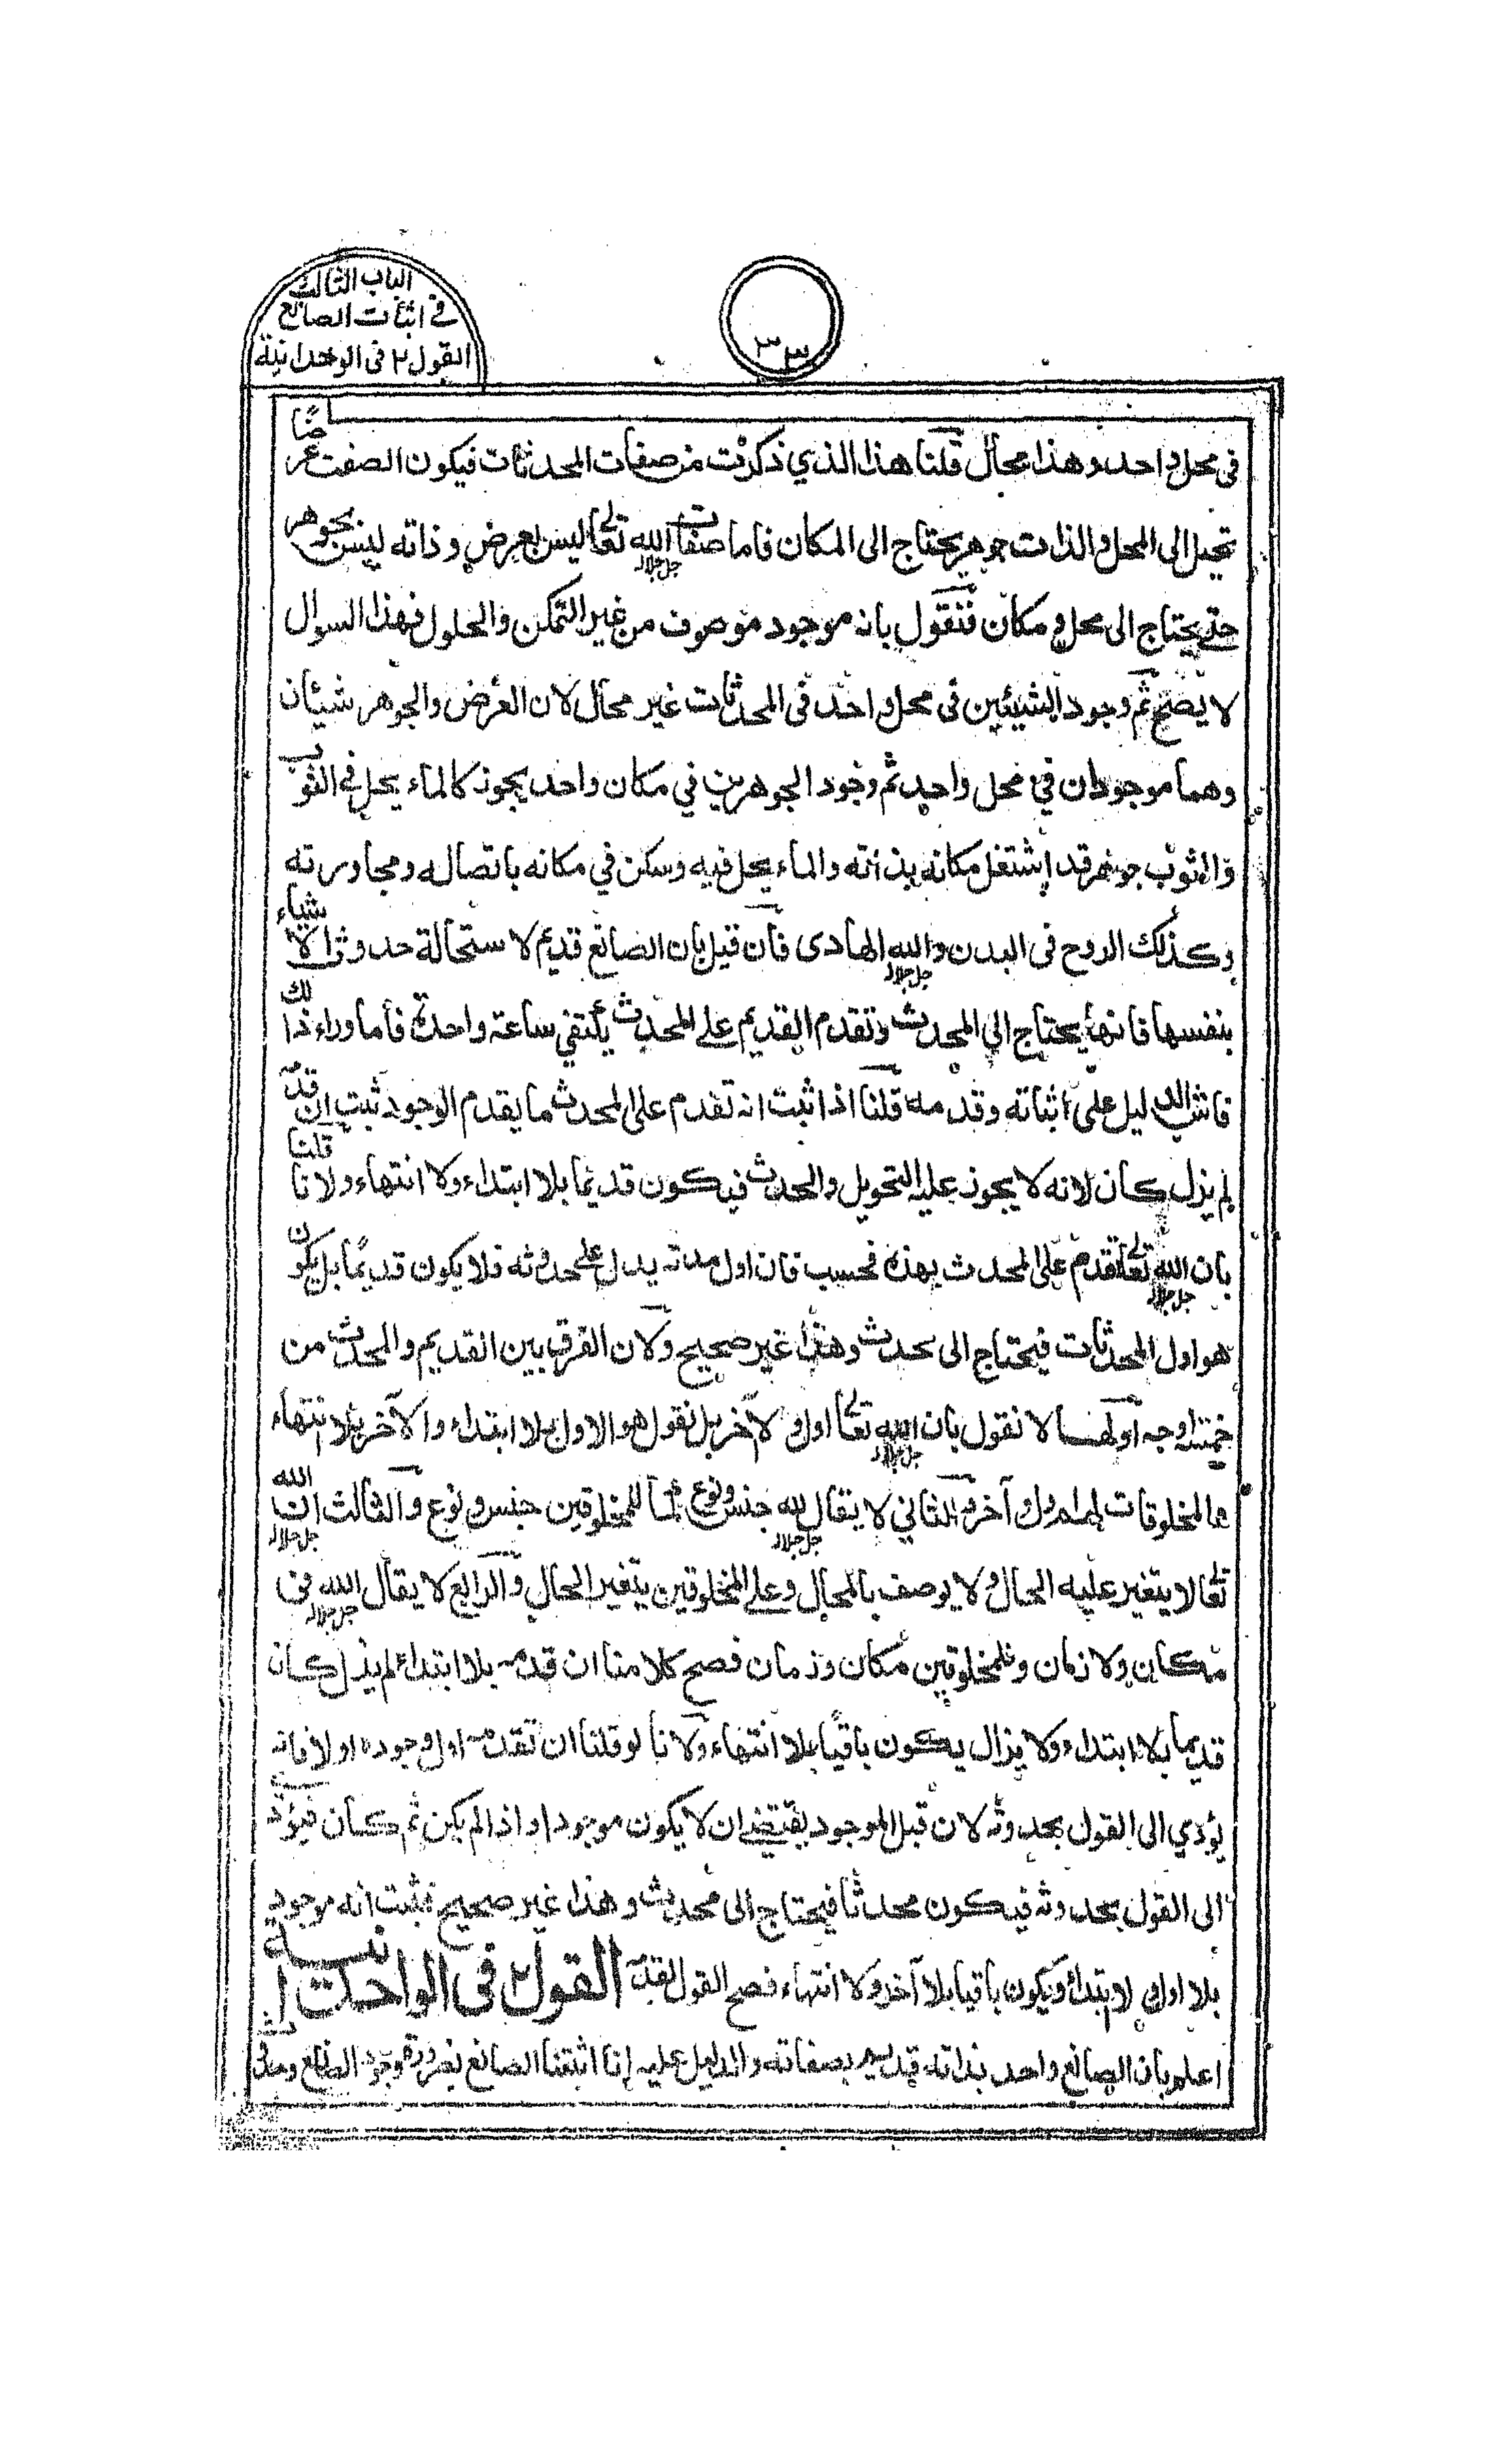 الباب الثالث
في اثبات الصانع
القول ٢ في الوحدانية
٣٣
في محل واحد وهذا محال قلنا هذا الذي ذكرت من صفات المحدثات فيكون الصفت عرضًا
تحيل الى المحل والذات جوهر يحتاج الى المكان فاما صفات الله تعالى جل جلاله ليس بعرض وذاته ليس بجوهر
حتى يحتاج الى محل و مكان فنقول بانه موجود موصوف من غير التمكن والحلول فهذا السوال
لا يصح ثم وجود الشيئين في محل واحد في المحدثات غير محال لان العرض والجوهر شيئان
وهما موجودان في محل واحد ثم وجود الجوهرين في مكان واحد يجوز كالماء يحل في الثوب
والثوب جوهر قد اشتغل مكانه بذاته والماء يحل فيه وسكن في مكانه باتصاله ومجاورته
وكذلك الروح في البدن والله جل جلاله الهادى فان قيل بان الصانع قديم لا ستحالة حدوث الاشياء
بنفسها فانها يحتاج الى المحدث وتقدم القديم على المحدث يكتفي ساعة واحدة فاما وراء ذالك
فاش الدليل على اثباته وقدمه قلنا اذا ثبت انه تقدم على المحدث ما يقدم الوجود ثبت ان قدمه
لم يزل كان لانه لا يجوز عليه التحويل والحدث فيكون قديما بلا ابتداء ولا انتهاء ولانا قلنا
بان الله تعالى جل جلاله تقدم على المحدث بهذه فحسب فان اول مدته يدل على حدوثه فلا يكون قديمًا بل يكون
هو اول المحدثات فيحتاج الى محدث وهذا غير صحيح ولان الفرق بين القديم والمحدث من
خمسة اوجه اولها لا نقول بان الله تعالى جل جلاله اول و لا آخر بل نقول هو الاول بلا ابتداء والآخر بلا انتهاء
والمخلوقات لها اول و آخر والثاني لا يقال لله جل جلاله جنس ونوع للمخلوقين جنس و نوع والثالث ان الله جل جلاله
تعالى لا يتغير عليه الحال ولا يوصف بالمحال وعلى المخلوقين يتغير الحال والرابع لا يقال الله جل جلاله في
مكان ولا زمان وللمخلوقين مكان وزمان فصح كلامنا ان قدمه بلا ابتداء لم يزل كان
قديما بلا ابتداء ولا يزال يكون باقيًا بلا انتهاء ولانا لو قلنا ان تقدمه اول وجوده اولا فانه
يؤدي الى القول بحدوثه لان قبل الموجود يقتضي ان لا يكون موجودا واذا لم يكن ثم كان فيؤد
الى القول بحدوثه فيكون محدثا فيحتاج الى محدث وهذا غير صحيح فثبت انه موجود
بلا اول ولا ابتداء ويكون باقيا بلا آخر ولا انتهاء فصح القول بقدمه القول ٢ في الواحدانية
اعلم بان الصانع واحد بذاته قديم بصفاته والدليل عليه انا اثبتنا الصانع بضرورة وجود الصانع